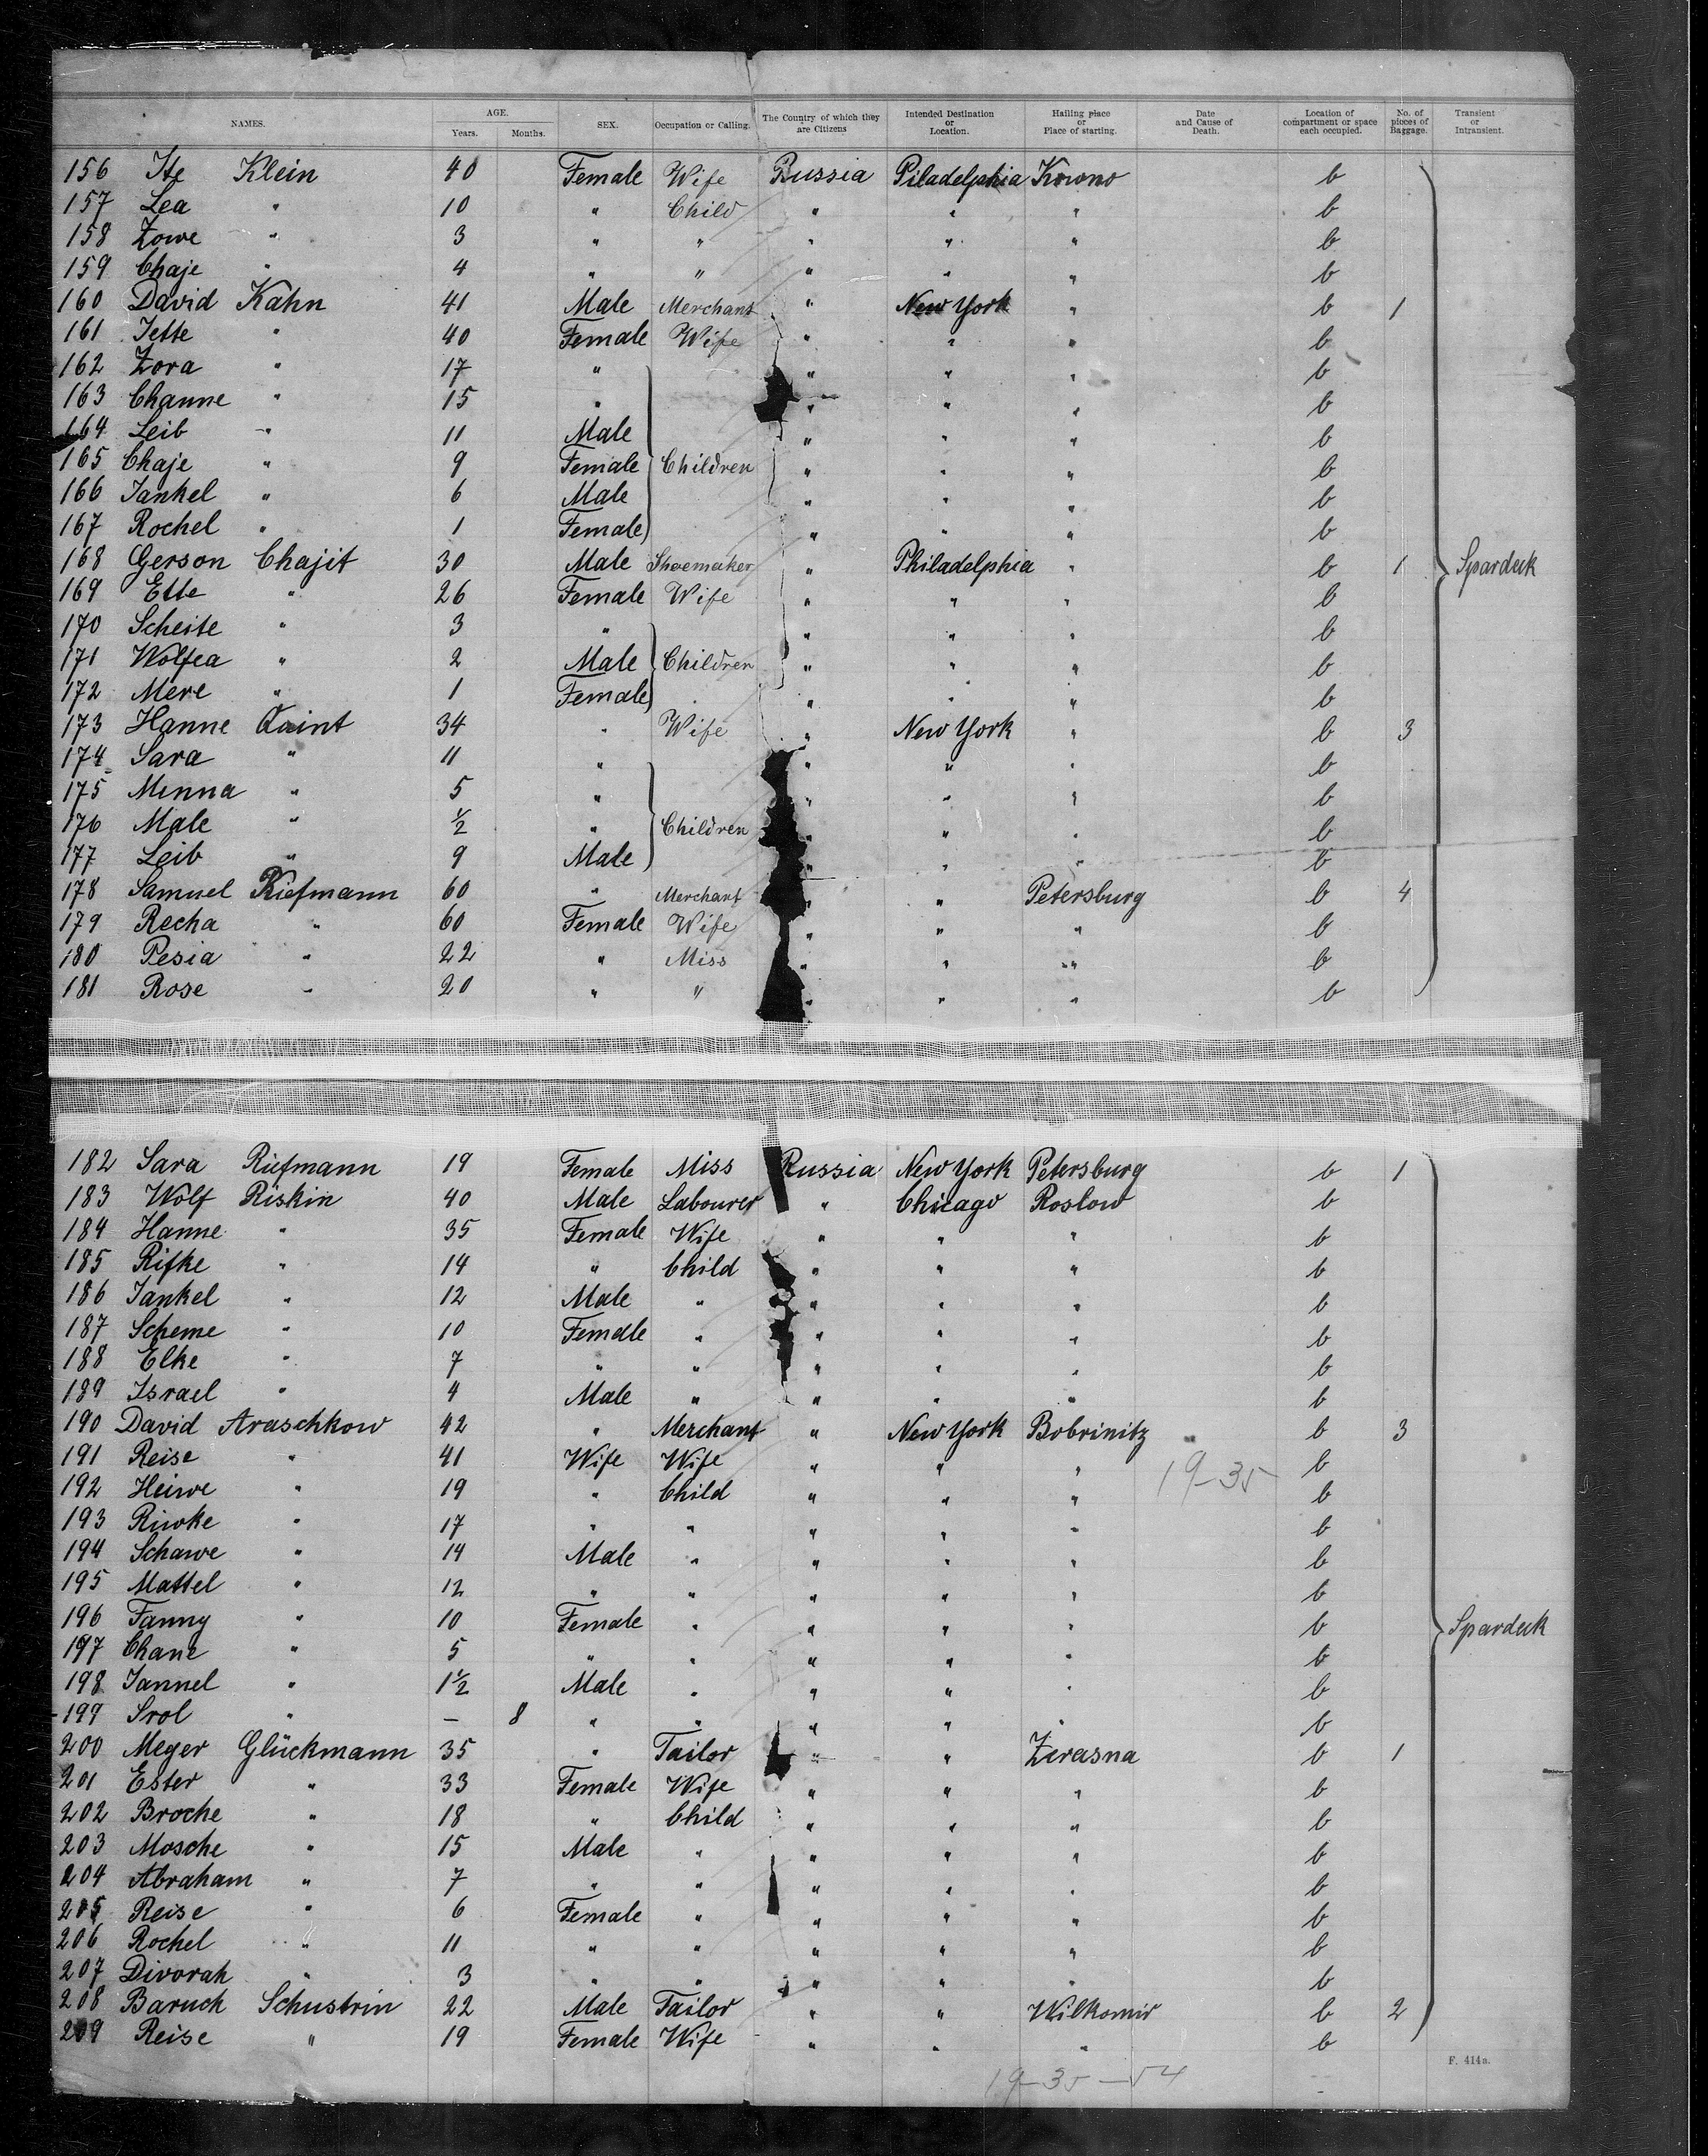 NAMES. AGE. Years. Months. SEX. Occupation or Calling. The Country of which they are Citizens Intended Destination or Location. Hailing place or Place of starting. Date and Cause of Death. Location of compartment or space each occupied. No. of pieces of Baggage. Transient or Intransient.
156 Ite Klein 40 Female Wife Russia Piladelphia Kowno b
157 Lea " 10 " Child " " " b
158 Zowe " 3 " " " " " b
159 Chaje " 4 " " " " " b
160 David Kahn 41 Male Merchant " New York " b 1
161 Jette " 40 Female Wife " " " b
162 Zora " 17 " " " " b
163 Channe " 15 " " " " b
164 Leib " 11 Male " " " b
165 Chaje " 9 Female Children " " " b
166 Jankel " 6 Male " " " b
167 Rochel " 1 Female " " " b
168 Gerson Chajit 30 Male Shoemaker " Philadelphia " b 1 Spardeck
169 Ette " 26 Female Wife " " " b
170 Scheite " 3 " " " " b
171 Wolfea " 2 Male Children " " " b
172 Mere " 1 Female " " " b
173 Hanne 34 " Wife " New York " b 3
174 Sara " 11 " " " " b
175 Minna " 5 " " " " b
176 Male " 1/2 " Children " " " b
177 Leib " 9 Male " " " b
178 Samuel Riefmann 60 " Merchant " " Petersburg b 4
179 Recha " 60 Female Wife " " " b
180 Pesia " 22 " Miss " " " b
181 Rose " 20 " " " " " b
182 Sara Riefmann 19 Female Miss Russia New York Petersburg b 1
183 Wolf Riskin 40 Male Labourer " Chicago Roslow b
184 Hanne " 35 Female Wife " " " b
185 Rifke " 14 " Child " " " b
186 Jankel " 12 Male " " " " b
187 Scheme " 10 Female " " " " b
188 Elke " 7 " " " " " b
189 Israel " 4 Male " " " " b
190 David Araschkow 42 " Merchant " New York Bobrinitz b 3
191 Reise " 41 Wife Wife " " " 19-35 b
192 Heiwe " 19 " Child " " " b
193 Riwke " 17 " " " " " b
194 Schawe " 14 Male " " " " b
195 Mattel " 12 " " " " " b
196 Fanny " 10 Female " " " " b Spardeck
197 Chane " 5 " " " " " b
198 Jannel " 1 1/2 Male " " " " b
199 Srol " — 8 " " " " " b
200 Meyer Glückmann 35 " Tailor " " Zerasna b 1
201 Ester " 33 Female Wife " " " b
202 Broche " 18 " Child " " " b
203 Mosche " 15 Male " " " " b
204 Abraham " 7 " " " " " b
205 Reise " 6 Female " " " " b
206 Rochel " 11 " " " " " b
207 Divorah " 3 " " " " " b
208 Baruch Schustrin 22 Male Tailor " " Wilkomir b 2
209 Reise " 19 Female Wife " " " b
F. 414a.
19-35-54